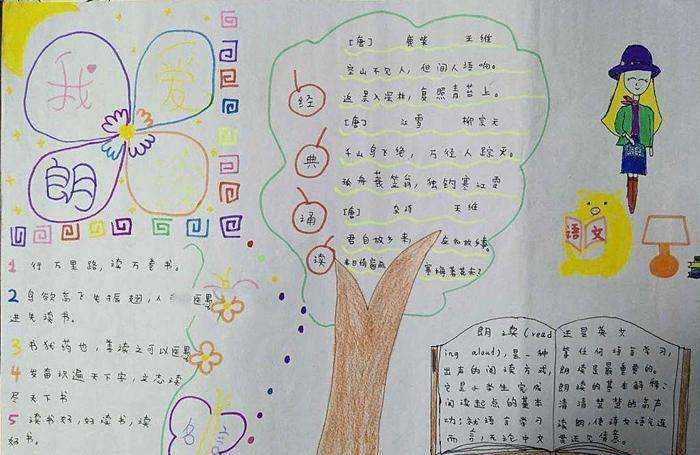 我
爱
朗
经
典
诵
读
[唐] 鹿柴 王维
空山不见人，但闻人语响。
返景入深林，复照青苔上。
[唐] 江雪 柳宗元
千山鸟飞绝，万径人踪灭。
孤舟蓑笠翁，独钓寒江雪
[唐] 杂诗 王维
君自故乡来，
来日绮窗前
寒梅著花未？
语文
1 行万里路，读万卷书。
2 鸟欲高飞先振翅，人
进先读书。
3 书犹药也，善读之可以医愚
4 发奋识遍天下字，立志读
尽天下书
5 读书好，好读书，读
好书。
名
朗读(read
ing aloud)，是一种
出声的阅读方式，
它是小学生完成
阅读起点的基本
功；就语言学习
而言，无论中文
还是英文
等任何语言学习，
朗读是最重要的。
朗读的基本解释：
清清楚楚的高声